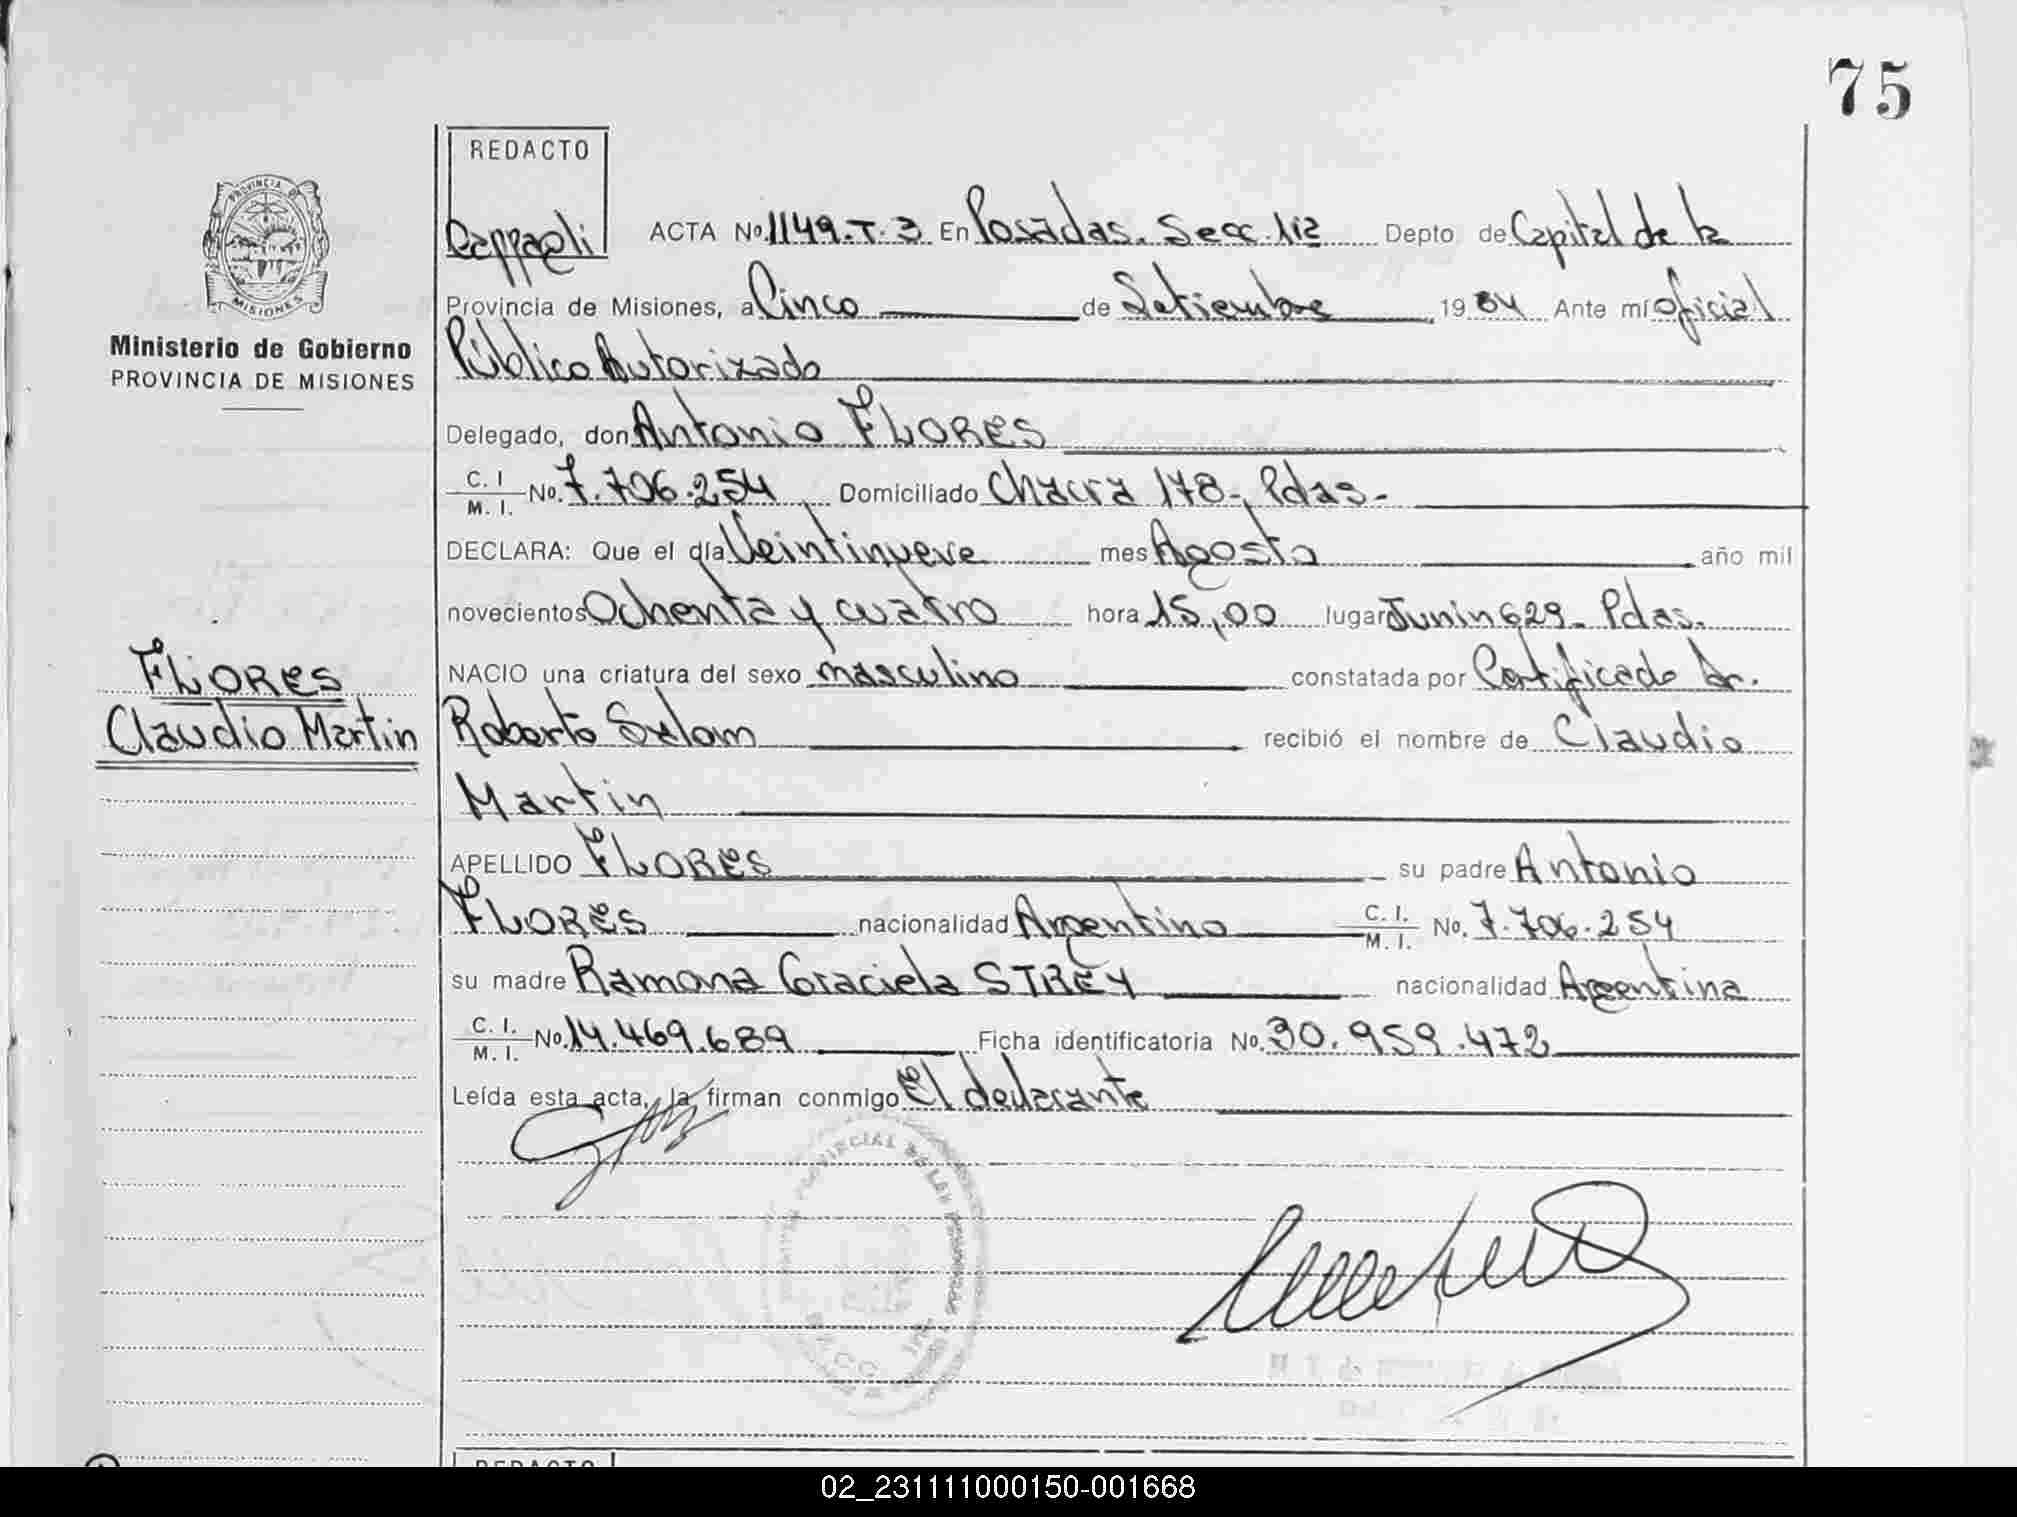 75
REDACTO
PROVINCIA DE
MISIONES
Ministerio de Gobierno
PROVINCIA DE MISIONES
ACTA No. 1149-T-3 En Posadas. Secc. 1ra Depto de Capital de la
Provincia de Misiones, a Cinco de Setiembre 1984 Ante mí oficial
Público Autorizado
Delegado, don Antonio FLORES
C. I. / M. I. No. 7.706.254 Domiciliado Chacra 178-, Pdas-
DECLARA: Que el día Veintinueve mes Agosto año mil
novecientos Ochenta y cuatro hora 15,00 lugar Junin 629- Pdas.
FLORES
Claudio Martin
NACIO una criatura del sexo masculino constatada por Certificado Dr.
Roberto recibió el nombre de Claudio
Martin
APELLIDO FLORES su padre Antonio
FLORES nacionalidad Argentino C. I. / M. I. No. 7.706.254
su madre Ramona Graciela STREY nacionalidad Argentina
C. I. / M. I. No. 14.469.689 Ficha identificatoria No. 30.959.472
Leída esta acta, la firman conmigo El declarante
REDACTO
02_231111000150-001668